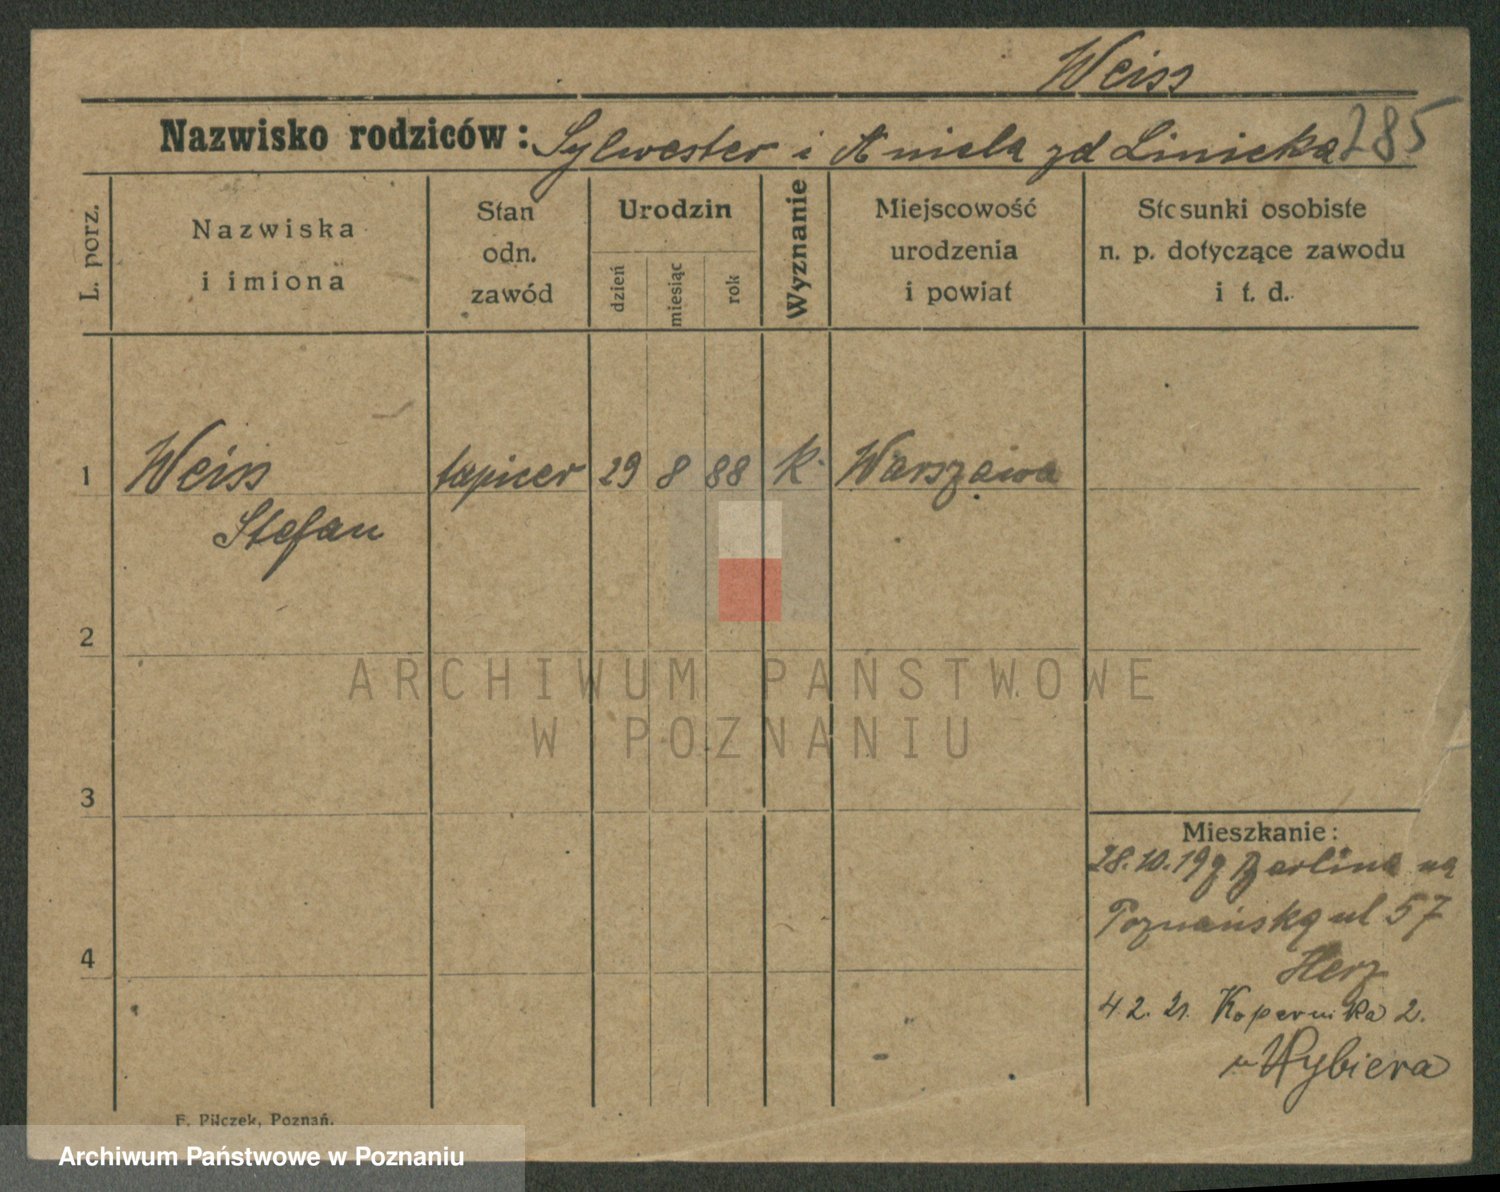 Weiss
Nazwisko rodziców: Sylwester i Aniela zd Linicka 285
L. porz.
Nazwiska
i imiona
Stan
odn.
zawód
Urodzin
dzień
miesiąc
rok
Wyznanie
Miejscowość
urodzenia
i powiat
Stosunki osobiste
n. p. dotyczące zawodu
i t. d.
1 Weiss tapicer 29 8 88 k. Warszawa
Stefan
2
ARCHIWUM PAŃSTWOWE
W POZNANIU
3
Mieszkanie:
28.10.19 z Berlina na
Poznańską ul 57
4
Herz
4.2.21. Kopernika 2.
u Wybiera
F. Pilczek, Poznań.
Archiwum Państwowe w Poznaniu